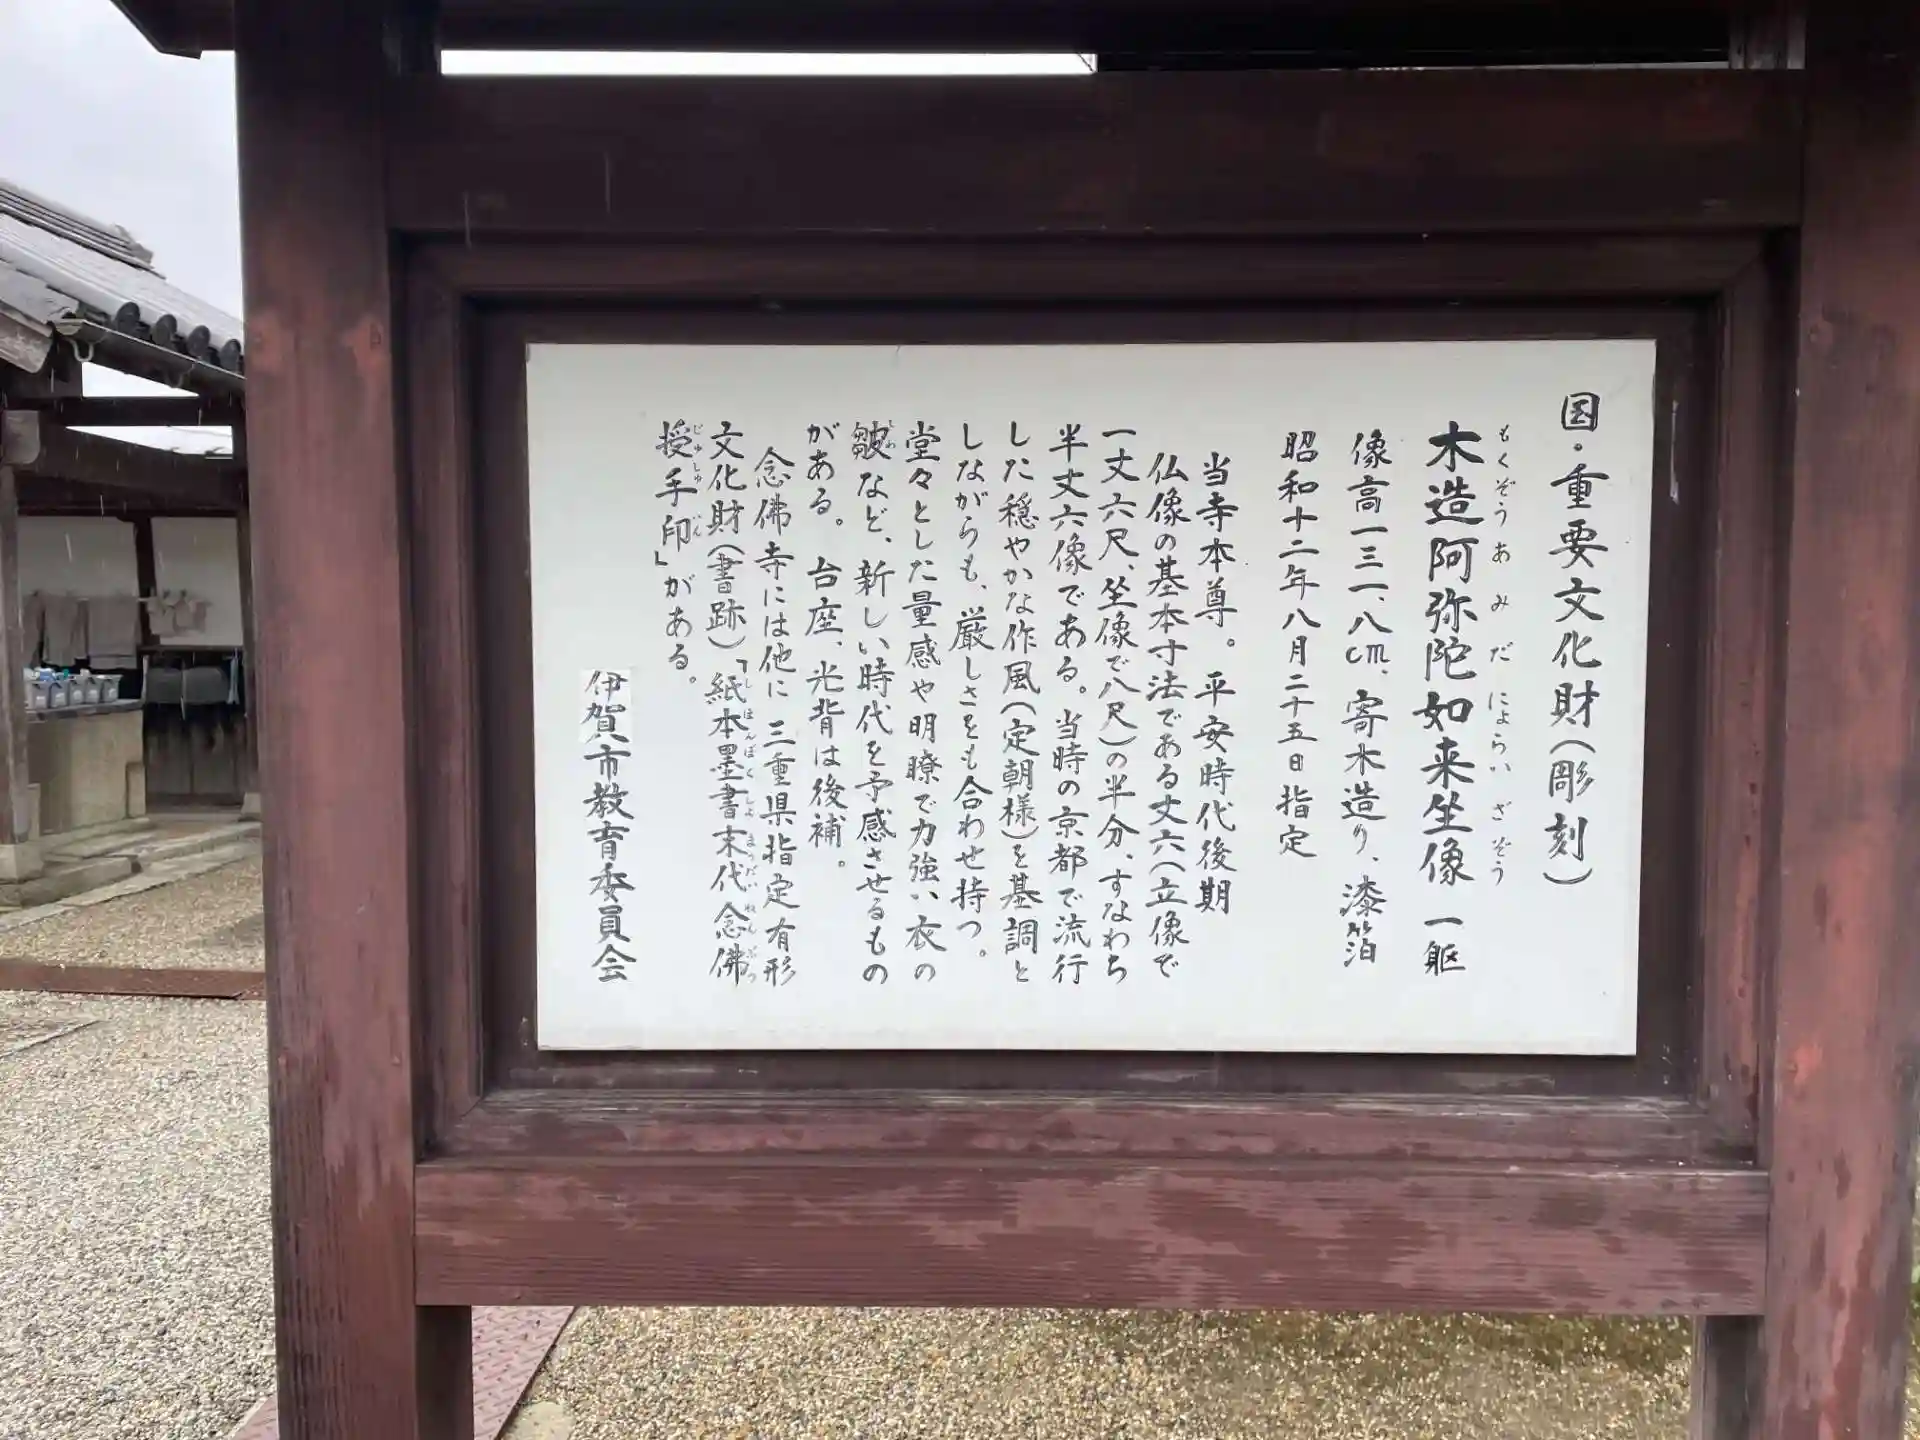 国・重要文化財(彫刻)
もくぞうあみだにょらいざぞう
木造阿弥陀如来坐像 一躯
像高一三一、八cm、寄木造り、漆箔
昭和十二年八月二十五日指定
当寺本尊。平安時代後期
仏像の基本寸法である丈六(立像で
一丈六尺、坐像で八尺)の半分、すなわち
半丈六像である。当時の京都で流行
した穏やかな作風(定朝様)を基調と
しながらも、厳しさをも合わせ持つ。
堂々とした量感や明瞭で力強い衣の
しわ
皺など、新しい時代を予感させるもの
がある。台座、光背は後補。
念佛寺には他に三重県指定有形
文化財(書跡)「紙本墨書末代念佛
しほんぼくしょまつだいねんぶつ
授手印」がある。
じゅしゅいん
伊賀市教育委員会